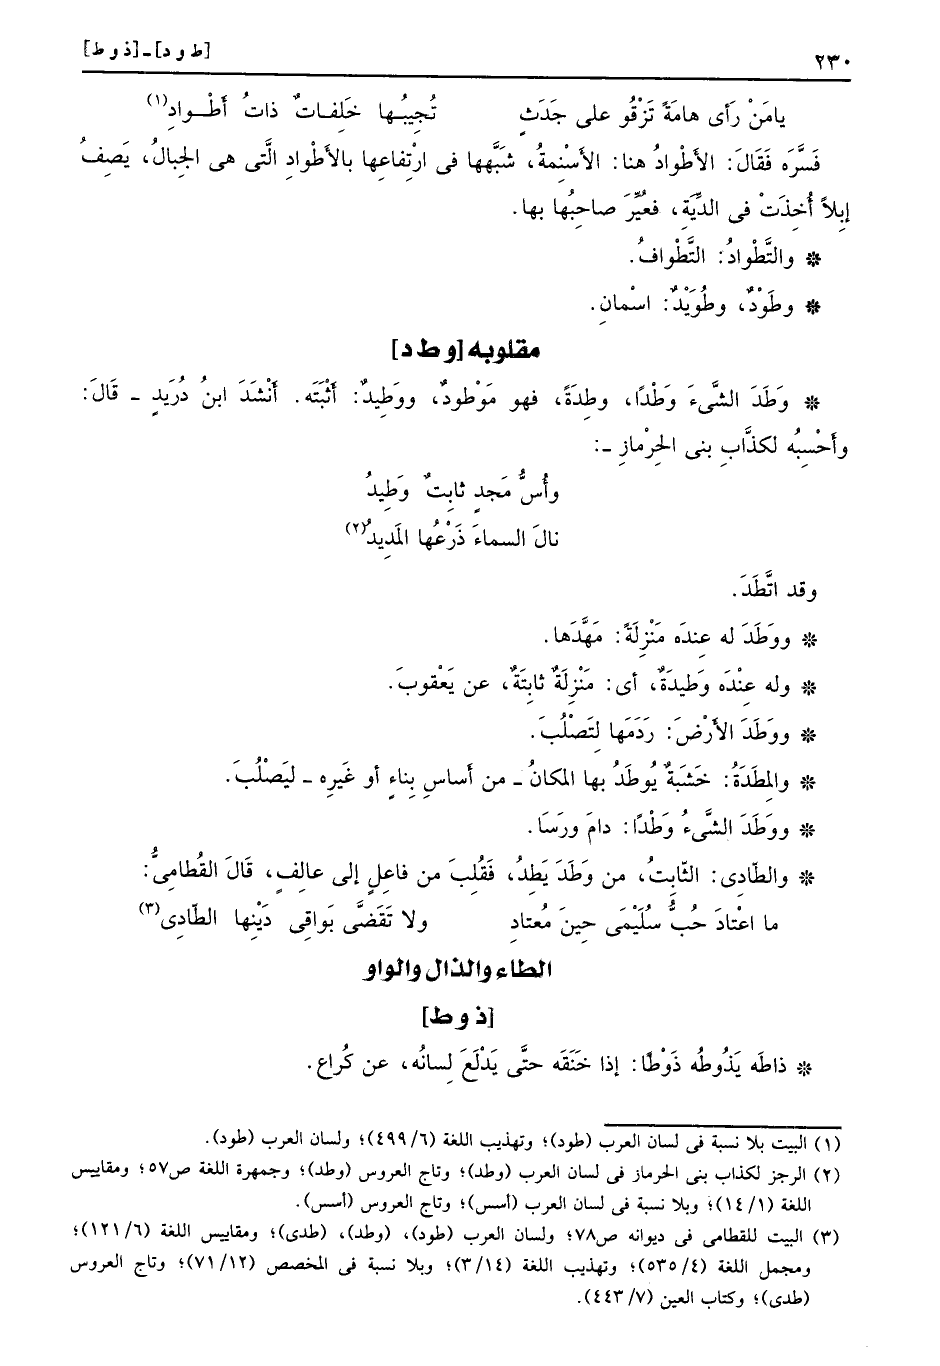 ٢٣٠
[ط و د] ـ [ذ و ط]
يامَنْ رَأى هامَةً تَزْقُو على جَدَثٍ تُجِيبُـها خَلِفـاتٌ ذاتُ أَطْـوادِ(١)
فَسَّرَه فَقَالَ: الأَطْوادُ هنا: الأَسْنِمةُ، شَبَّهها فى ارْتِفاعِها بالأَطْوادِ الَّتى هى الجِبالُ، يَصِفُ
إبِلاً أُخِذَتْ فى الدِّيَةِ، فعُيِّرَ صاحِبُها بها.
* والتَّطْوادُ: التَّطْوافُ.
* وطَوْدٌ، وطُوَيْدٌ: اسْمانِ.
مقلوبه [و ط د]
* وَطَدَ الشَّىءَ وَطْدًا، وطِدَةً، فهو مَوْطودٌ، ووَطِيدٌ: أثْبَتَه. أَنْشَدَ ابنُ دُرَيدٍ ـ قَالَ:
وأَحْسِبُه لكذَّابِ بنى الحِرْمازِ ـ:
وأُسُّ مَجدٍ ثابِتٌ وَطِيدُ
نالَ السماءَ ذَرْعُها المَدِيدُ(٢)
وقد اتَّطَدَ.
* ووَطَدَ له عِندَه مَنْزِلَةً: مَهَّدَها.
* وله عِنْدَه وَطِيدَةٌ، أى: مَنْزِلَةٌ ثابِتَةٌ، عن يَعْقوبَ.
* ووَطَدَ الأَرْضَ: رَدَمَها لتَصْلُبَ.
* والمِطَدَةُ: خَشَبَةٌ يُوطَدُ بها المكانُ ـ من أساسِ بِناءٍ أو غَيرِه ـ ليَصْلُبَ.
* ووَطَدَ الشَّىءُ وَطْدًا: دامَ ورَسَا.
* والطّادِى: الثّابِتُ، من وَطَدَ يَطِدُ، فَقُلِبَ من فاعِلٍ إلى عالِفٍ، قَالَ القُطامِىُّ:
ما اعْتادَ حُبُّ سُلَيْمَى حِينَ مُعْتادِ ولا تَقَضَّى بَواقِى دَيْنِها الطّادِى(٣)
الطاء والذال والواو
[ذ و ط]
* ذاطَه يَذُوطُه ذَوْطًا: إذا خَنَقَه حتَّى يَدْلَعَ لِسانُه، عن كُراع.
(١) البيت بلا نسبة فى لسان العرب (طود)؛ وتهذيب اللغة (٤٩٩/٦)؛ ولسان العرب (طود).
(٢) الرجز لكذاب بنى الحرماز فى لسان العرب (وطد)؛ وتاج العروس (وطد)؛ وجمهرة اللغة ص٥٧؛ ومقاييس
اللغة (١٤/١)؛ وبلا نسبة فى لسان العرب (أسس)؛ وتاج العروس (أسس).
(٣) البيت للقطامى فى ديوانه ص٧٨؛ ولسان العرب (طود)، (وطد)، (طدى)؛ ومقاييس اللغة (١٢١/٦)؛
ومجمل اللغة (٥٣٥/٤)؛ وتهذيب اللغة (٣/١٤)؛ وبلا نسبة فى المخصص (٧١/١٢)؛ وتاج العروس
(طدى)؛ وكتاب العين (٤٤٣/٧).